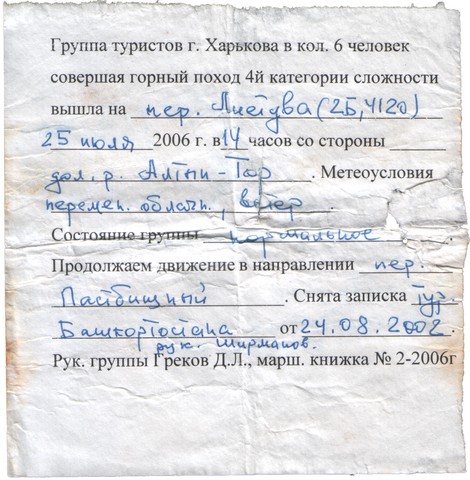 Группа туристов г. Харькова в кол. 6 человек
совершая горный поход 4й категории сложности
вышла на пер. Листва (2Б, 4120)
25 июля 2006 г. в 14 часов со стороны
дол. р. Алтын-Тор. Метеоусловия
перемен. облачн., ветер.
Состояние группы нормальное.
Продолжаем движение в направлении пер.
Пастбищный. Снята записка тур.
Башкортостана от 24.08.2002.
рук. Ширманов.
Рук. группы Греков Д.Л., марш. книжка № 2-2006г